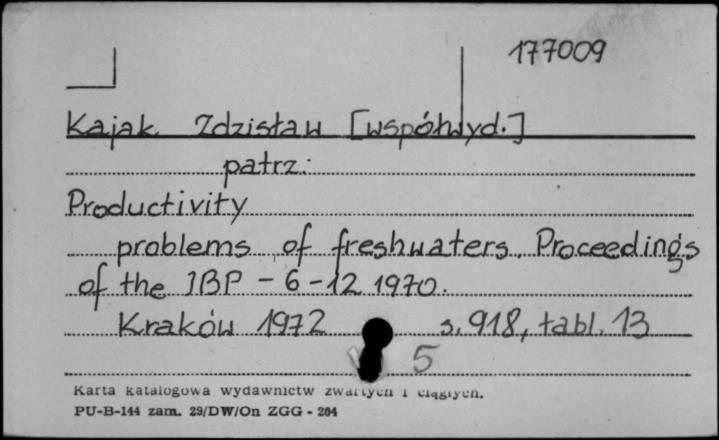 177009
Kajak Zdzisław [współwyd.]
patrz:
Productivity
problems of freshwaters. Proceedings
of the IBP - 6-12 1970.
Kraków 1972 s. 918, tabl. 13
5
Karta katalogowa wydawnictw zwartych i ciągłych.
PU-B-144 zam. 29/DW/On ZGG - 264